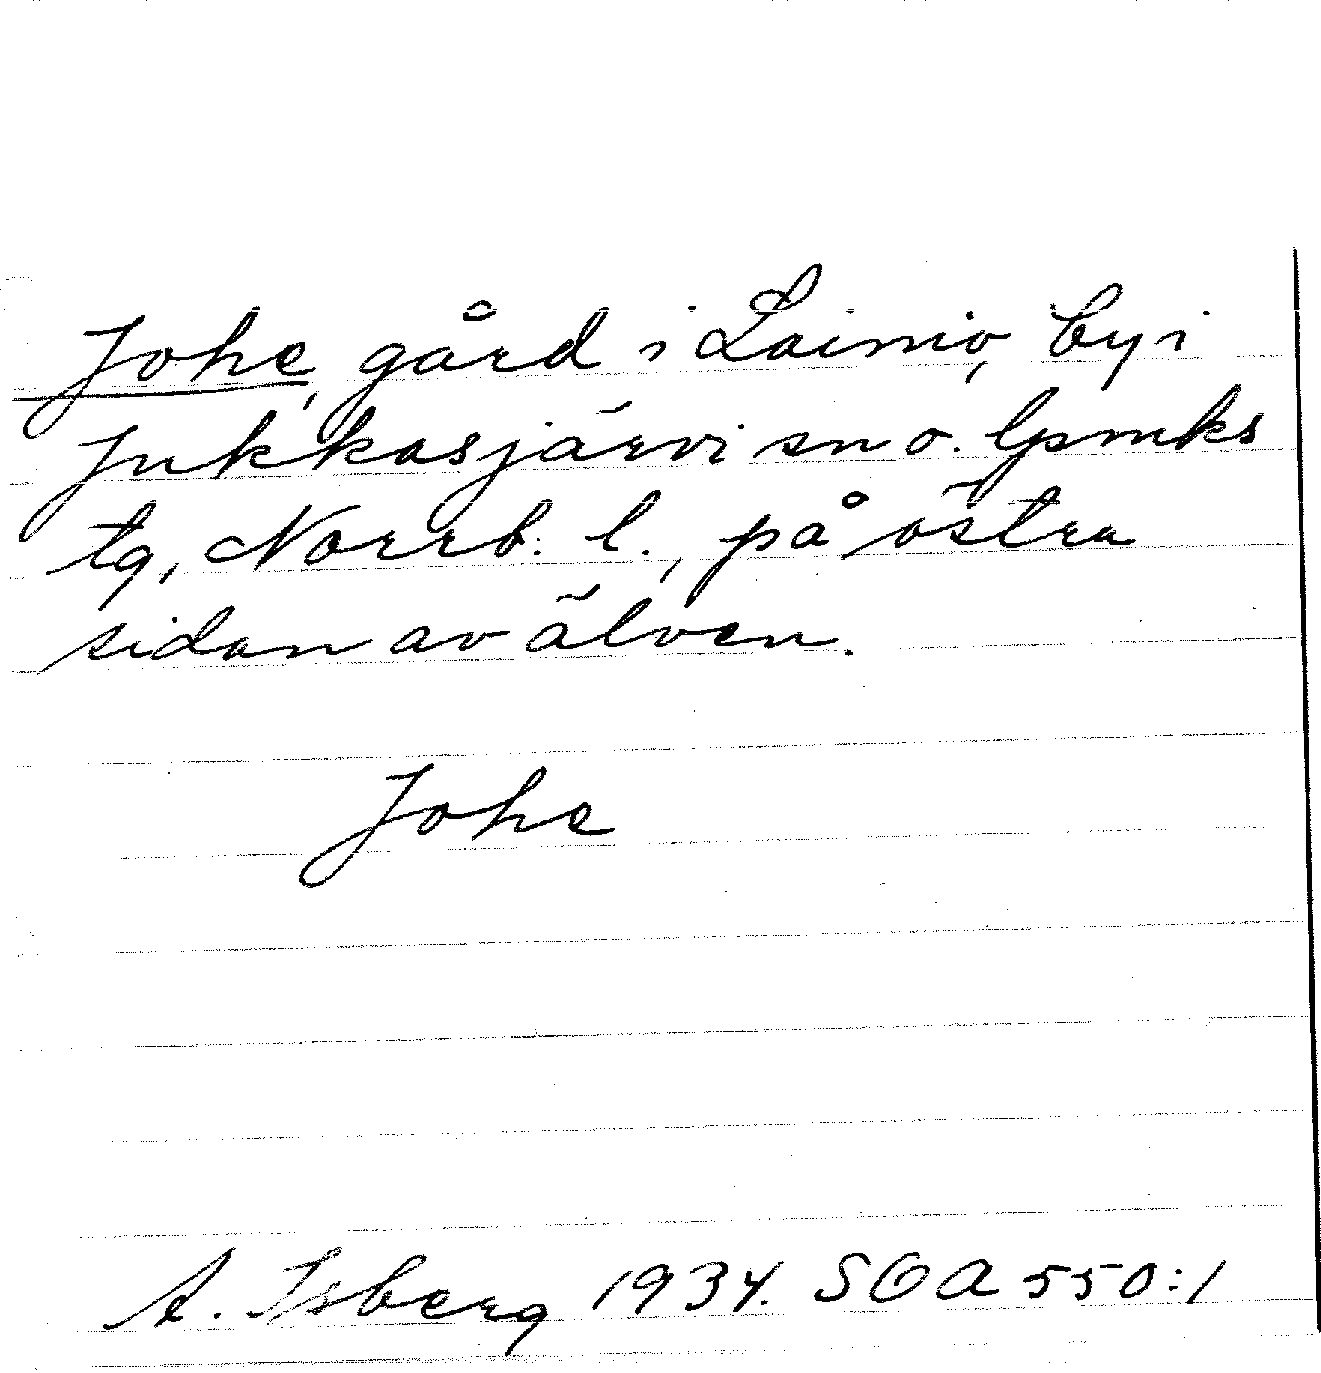 Johe, gård i Lainio, by i
Jukkasjärvi sn o. lpmks
tg, Norrb. l., på östra
sidan av älven.
Johe
A. Isberg 1934. SOA 550:1